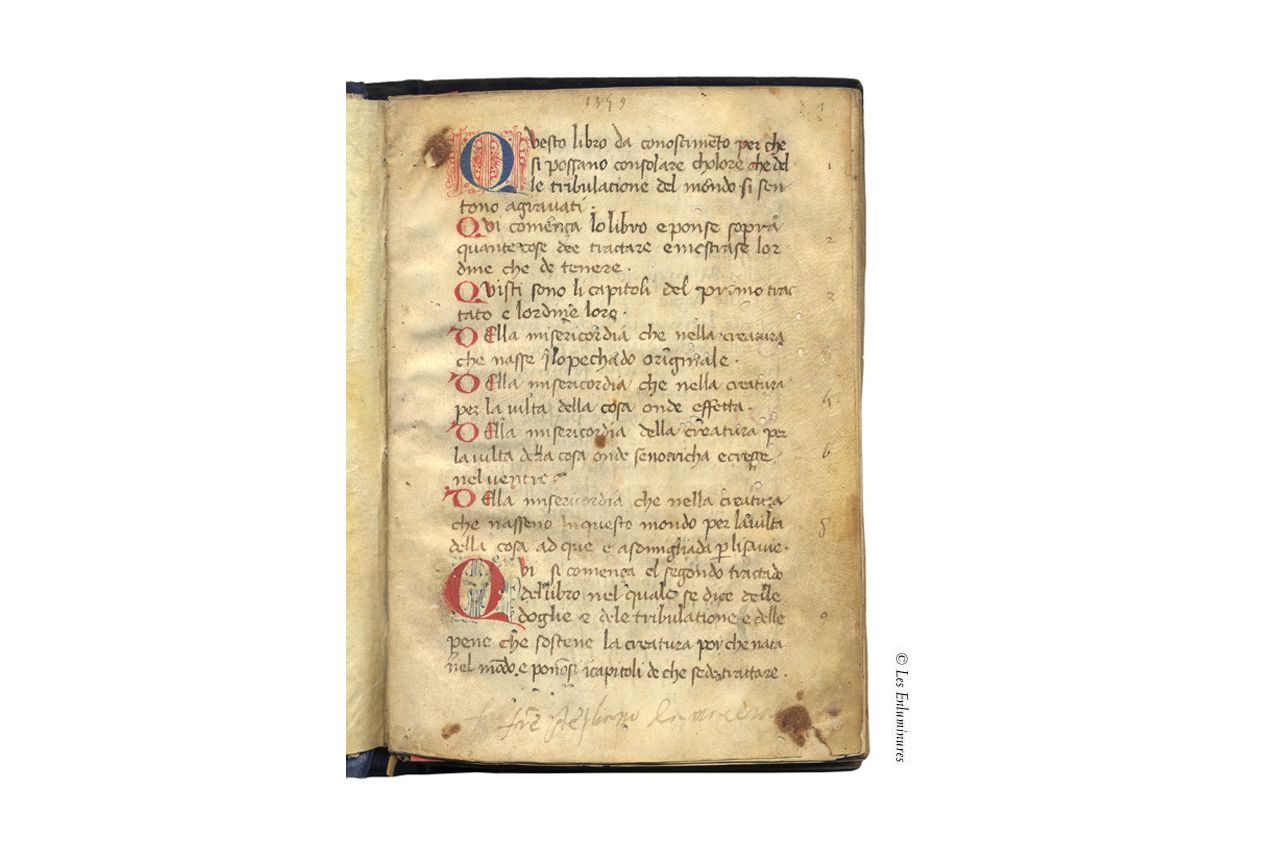 1399
1
Questo libro da conoscimēto per che
si possano consolare choloro che del
le tribulatione del mondo si sen
tono agravati.
Qui comēça lo libro e ponse sopra
quante cose dee tractare e mostrase lor
dine che de tenere.
Quisti sono li capitoli del primo trac
tato e lordine loro.
Della misericordia che nella creatura
che nasse ī lo pechado originale.
Della misericordia che nella creatura
per la vilta della cosa onde effetta.
Della misericordia della creatura per
la vilta della cosa onde se notricha e cresse
nel ventre
Della misericordia che nella creatura
che nasseno in questo mondo per la vilta
della cosa ad que e asomigliada
Qui si comença el segondo tractado
del libro nel quale se dice delle
doglie e dele tribulatione e delle
pene che sostene la creatura poy che nata
nel mōdo. e ponōsi i capitoli de che se de trattare.
© Les Enluminures